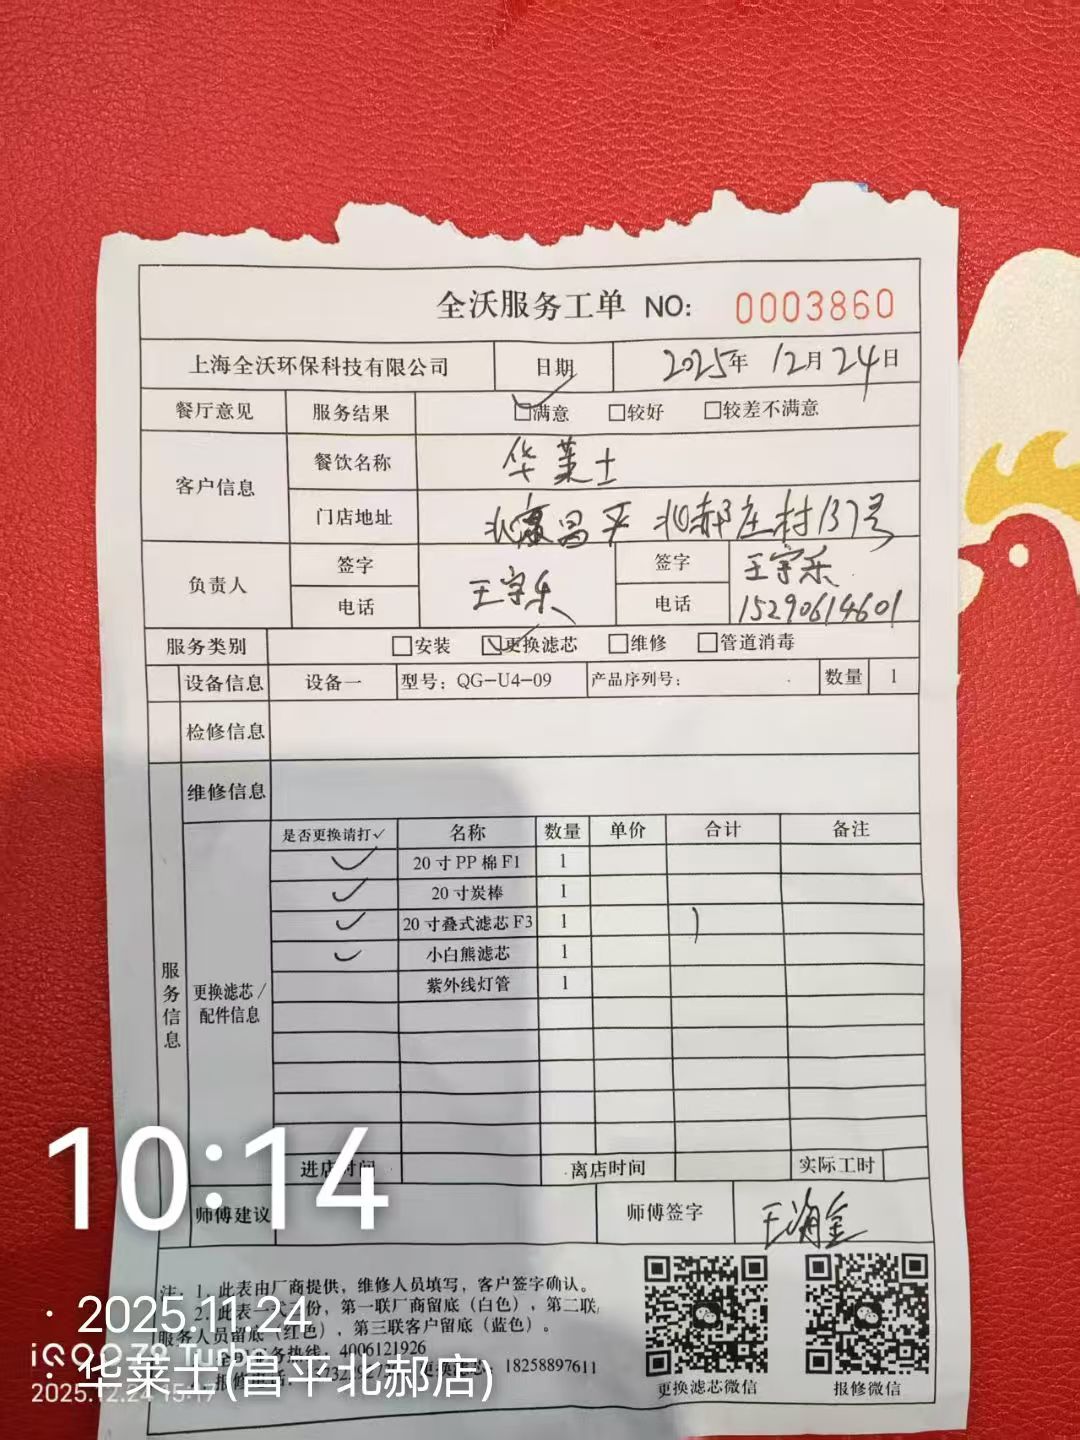 全沃服务工单 NO: 0003860
上海全沃环保科技有限公司 日期 2025年 12月 24日
餐厅意见 服务结果 ☑满意 □较好 □较差不满意
客户信息 餐饮名称 华莱士
门店地址 北京昌平 北郝庄村137号
负责人 签字 王宇乐 签字 王宇乐
电话 电话 15290614601
服务类别 □安装 ☑更换滤芯 □维修 □管道消毒
设备信息 设备一 型号: QG-U4-09 产品序列号: 数量 1
检修信息
维修信息
服务信息
更换滤芯/
配件信息
是否更换请打✓ 名称 数量 单价 合计 备注
✓ 20寸PP棉F1 1
✓ 20寸炭棒 1
✓ 20寸叠式滤芯F3 1
✓ 小白熊滤芯 1
紫外线灯管 1
进店时间 离店时间 实际工时
师傅建议 师傅签字
注: 1、此表由厂商提供，维修人员填写，客户签字确认。
2、此表一式三份，第一联厂商留底（白色），第二联
服务人员留底（红色），第三联客户留底（蓝色）。
务热线: 4006121926
报修电话: 更换滤芯: 18258897611
更换滤芯微信 报修微信
10:14
· 2025.11.24
· 华莱士(昌平北郝店)
iQOO Z9 Turbo
2025.12.24 15:17